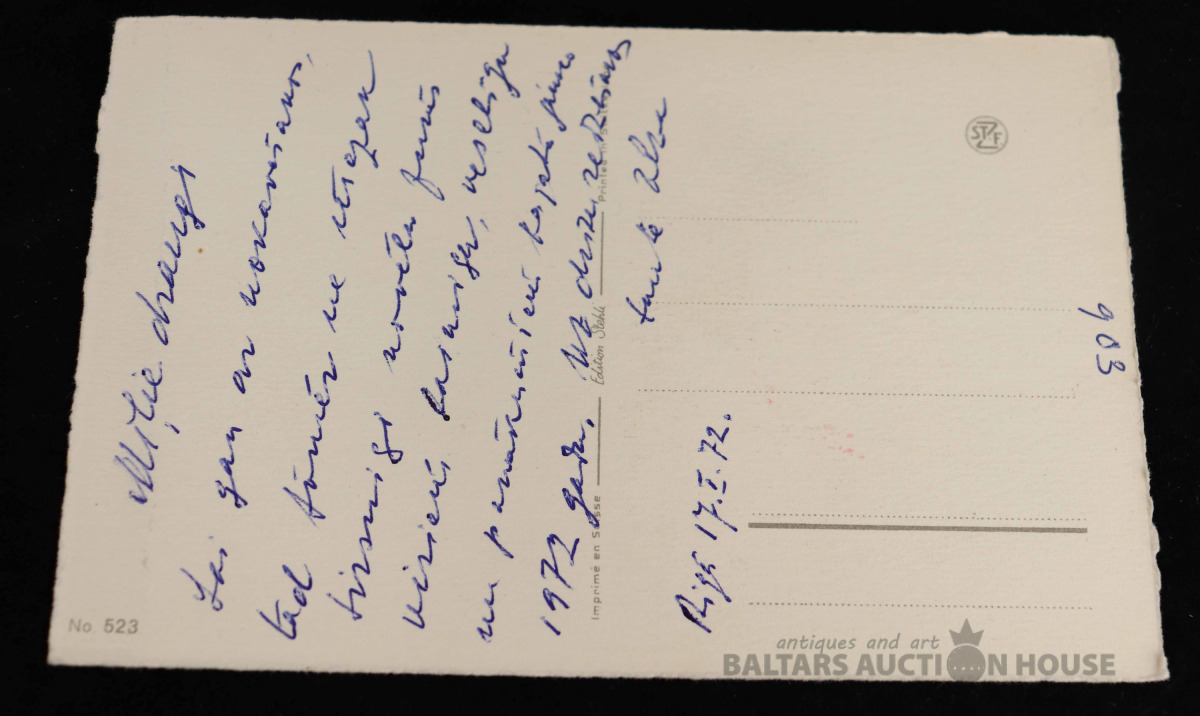 Mīļie draugi
Lai gan ar nokavēšanos,
tad tomēr ne mazāk
sirsnīgi novēlu Jums
visiem laimīgu, veselīgu
un panākumiem bagātu jauno
1972 gadu. Uz drīzu redzēšanos
tante Elza
Rīgā 17.I.72.
903
No 523
Imprimé en Suisse
Edition Stehli
Printed in
STZF
antiques and art
BALTARS AUCTION HOUSE